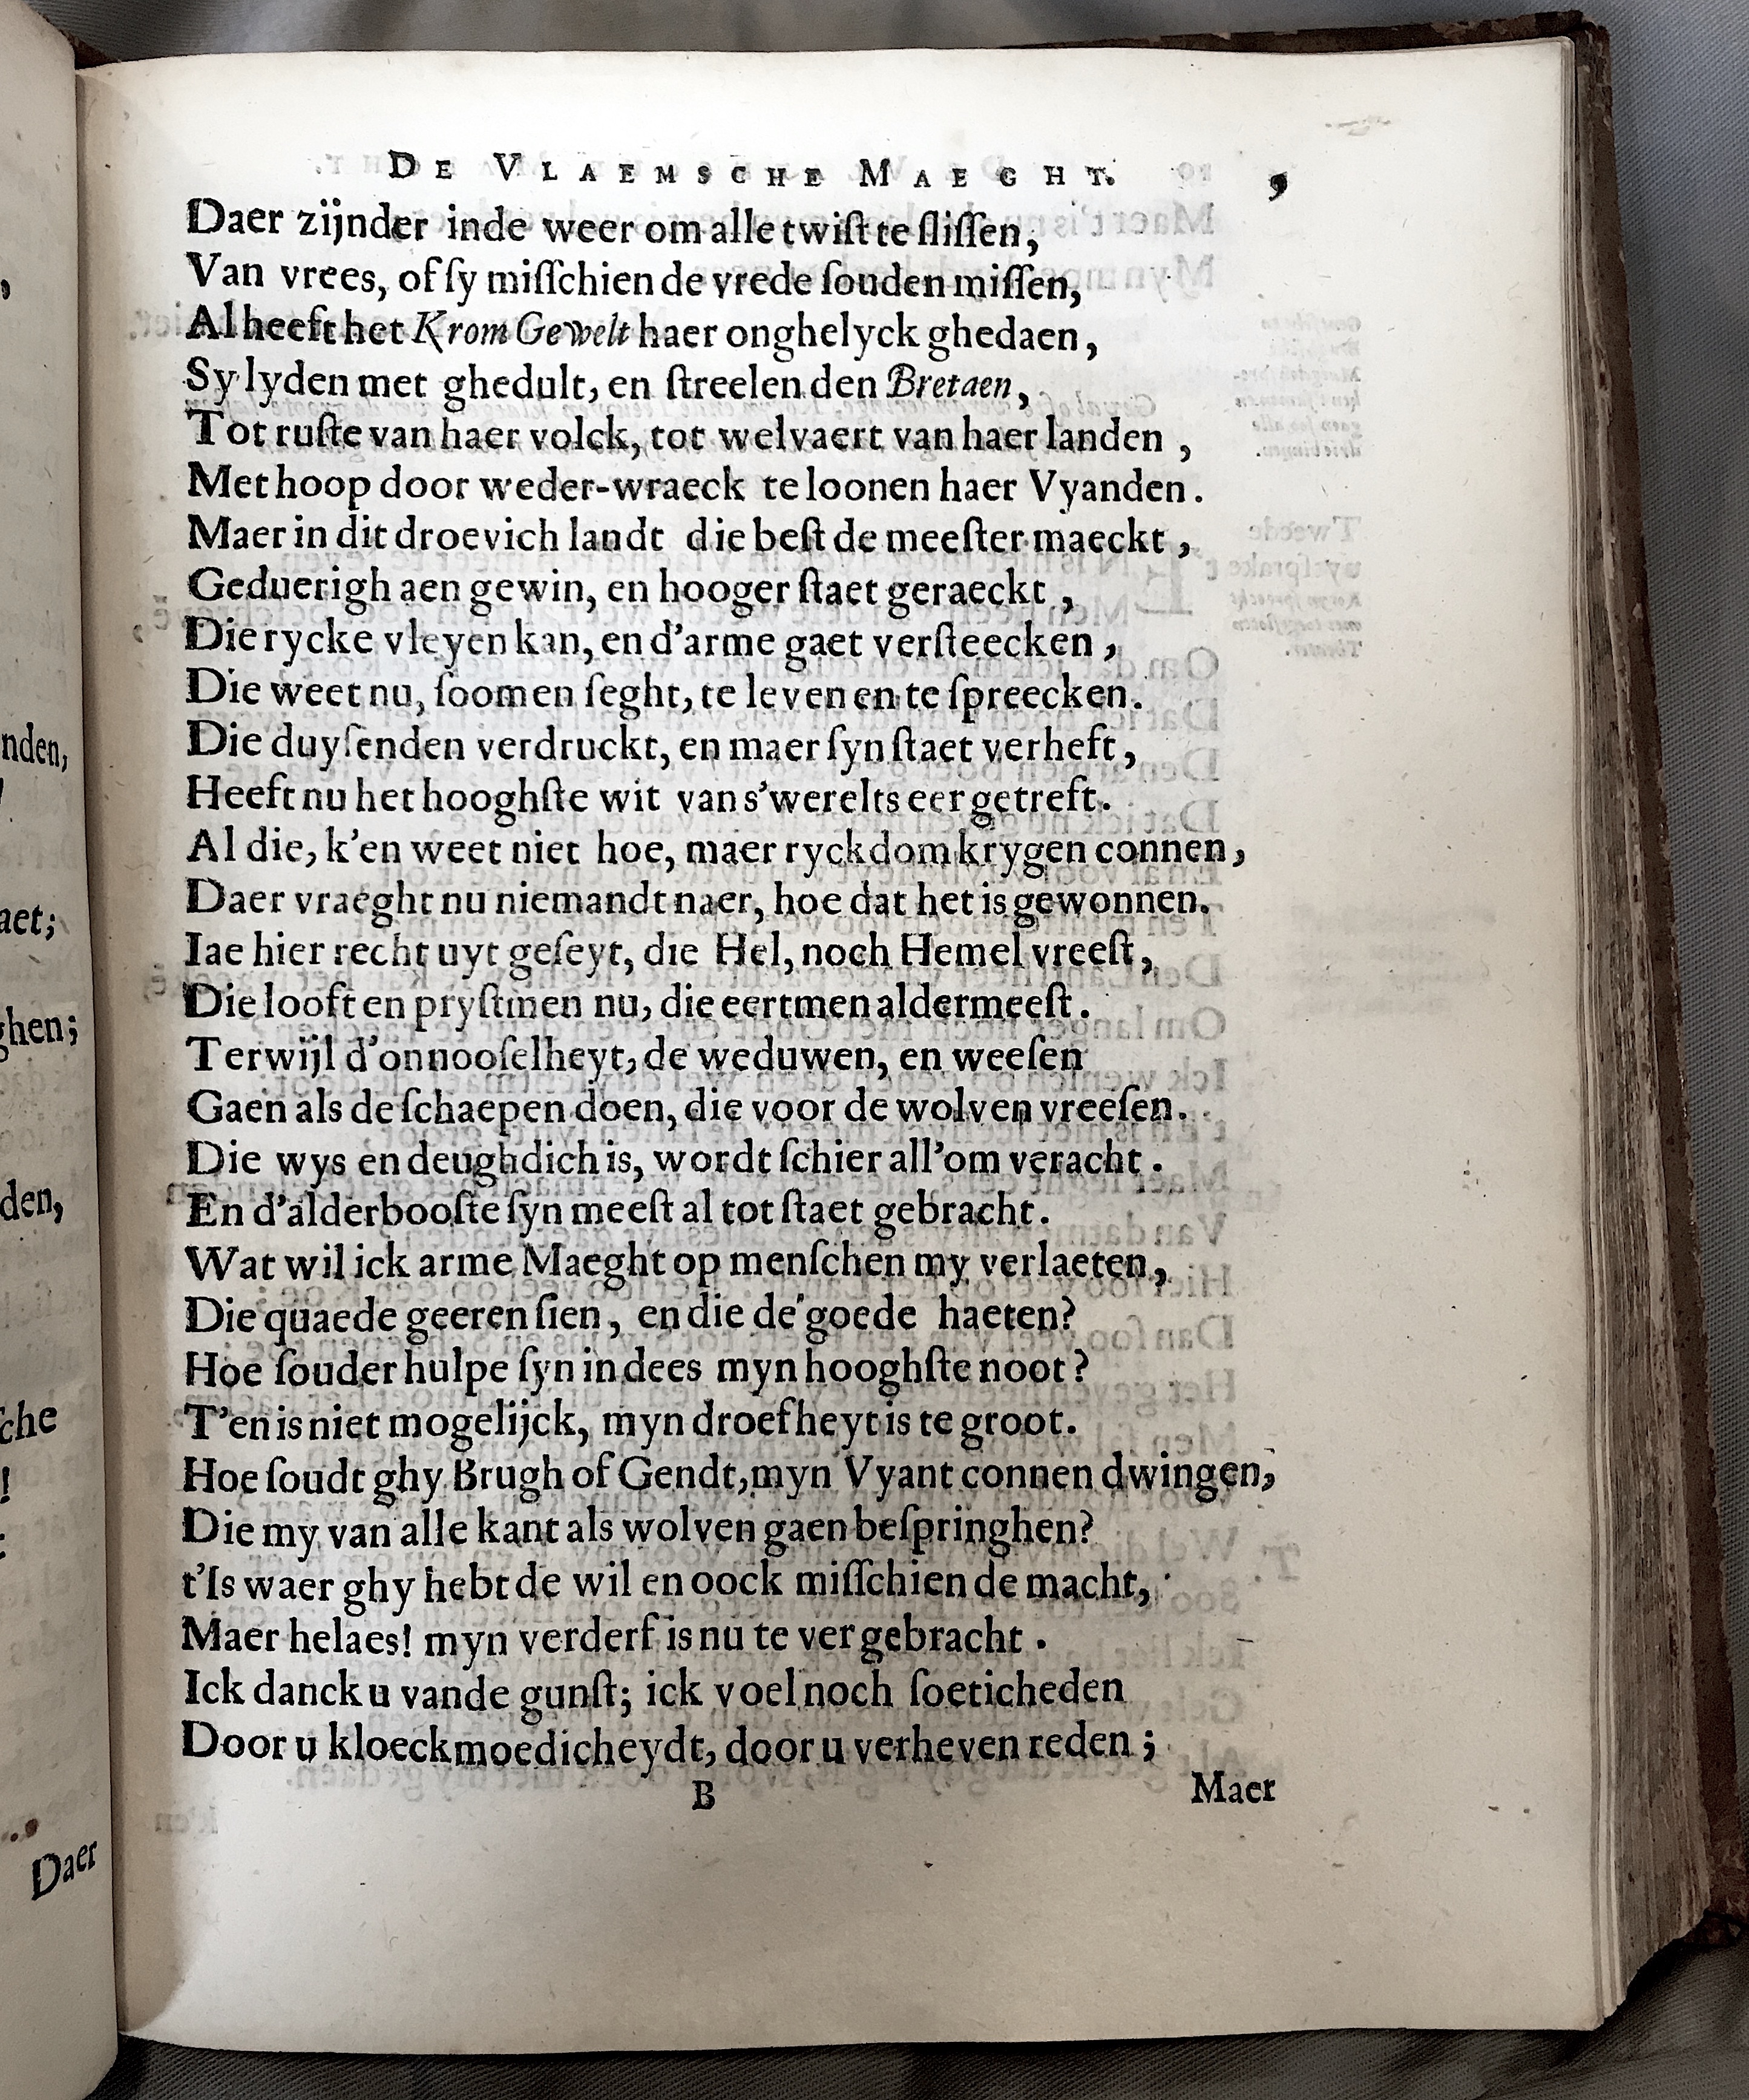 DE VLAEMSCHE MAEGHT. 9
Daer zijnder inde weer om alle twiſt te ſliſſen,
Van vrees, of ſy miſſchien de vrede ſouden miſſen,
Al heeft het Krom Gewelt haer onghelyck ghedaen,
Sy lyden met ghedult, en ſtreelen den Bretaen,
Tot ruſte van haer volck, tot welvaert van haer landen,
Met hoop door weder-wraeck te loonen haer Vyanden.
Maer in dit droevich landt die beſt de meeſter maeckt,
Geduerigh aen gewin, en hooger ſtaet geraeckt,
Die rycke vleyen kan, en d'arme gaet verſteecken,
Die weet nu, ſoomen ſeght, te leven en te ſpreecken.
Die duyſenden verdruckt, en maer ſyn ſtaet verheft,
Heeft nu het hooghſte wit van s'werelts eer getreft.
Al die, k'en weet niet hoe, maer ryckdom krygen connen,
Daer vraeght nu niemandt naer, hoe dat het is gewonnen.
Iae hier recht uyt geſeyt, die Hel, noch Hemel vreeſt,
Die looft en pryſtmen nu, die eertmen aldermeeſt.
Terwijl d'onnooſelheyt, de weduwen, en weeſen
Gaen als de ſchaepen doen, die voor de wolven vreeſen.
Die wys en deughdich is, wordt ſchier all'om veracht.
En d'alderbooſte ſyn meeſt al tot ſtaet gebracht.
Wat wil ick arme Maeght op menſchen my verlaeten,
Die quaede geeren ſien, en die de goede haeten?
Hoe ſouder hulpe ſyn in dees myn hooghſte noot?
T'en is niet mogelijck, myn droefheyt is te groot.
Hoe ſoudt ghy Brugh of Gendt, myn Vyant connen dwingen,
Die my van alle kant als wolven gaen beſpringhen?
t'Is waer ghy hebt de wil en oock miſſchien de macht,
Maer helaes! myn verderf is nu te ver gebracht.
Ick danck u vande gunſt; ick voel noch ſoeticheden
Door u kloeckmoedicheydt, door u verheven reden;
B Maer
nden,
aet;
ghen;
den,
ſche
!
Daer